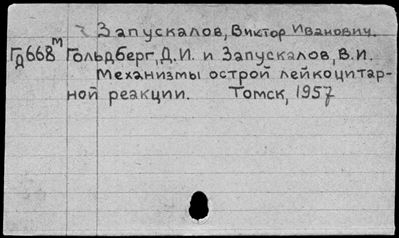 Запускалов, Виктор Иванович.
Гд668м Гольдберг, Д.И. и Запускалов, В.И.
Механизмы острой лейкоцитар-
ной реакции. Томск, 1957